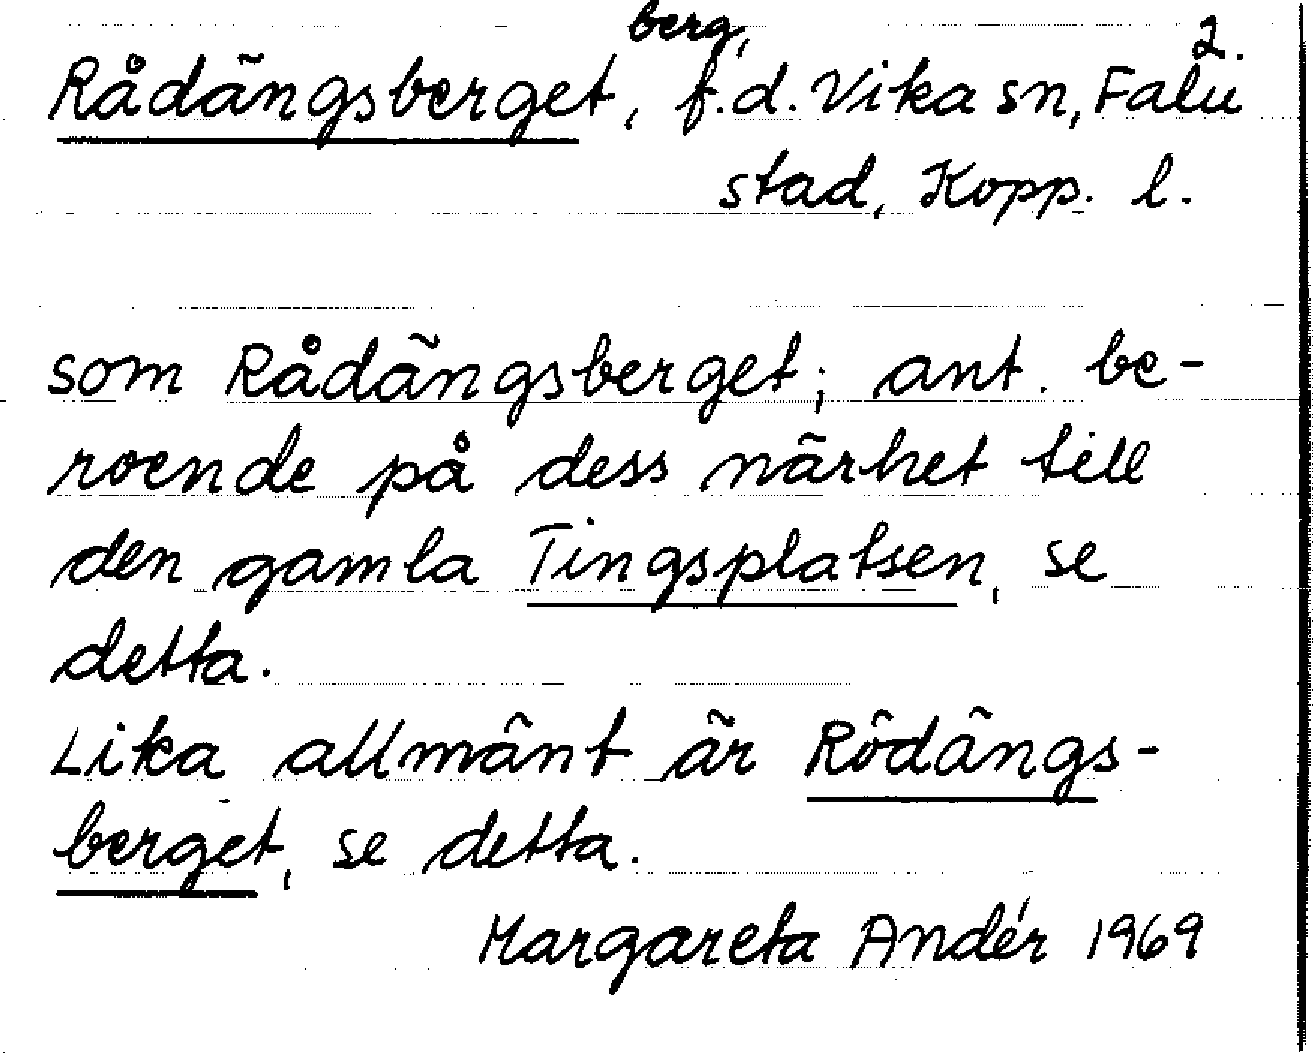 berg, 2.
Rådängsberget, f.d. Vika sn, Falu
stad, Kopp. l.
som Rådängsberget; ant. be-
roende på dess närhet till
den gamla Tingsplatsen, se
detta.
Lika allmänt är Rödängs-
berget, se detta.
Margareta Andér 1969